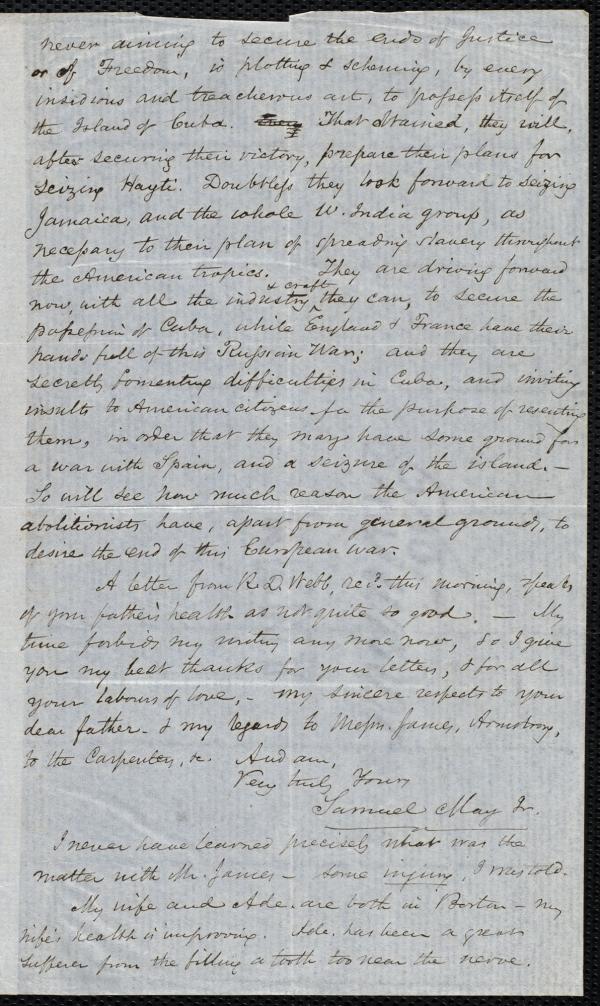 never aiming to secure the ends of Justice
or of Freedom, is plotting & scheming, by every
insidious and treacherous art, to possess itself of
the Island of Cuba. That attained, they will,
after securing their victory, prepare their plans for
seizing Hayti. Doubtless they look forward to seizing
Jamaica, and the whole W. India group, as
necessary to their plan of spreading slavery throughout
the American tropics. They are driving forward
now, with all the industry & craft they can, to secure the
possession of Cuba, while England & France have their
hands full of this Russian War; and they are
secretly fomenting difficulties in Cuba, and inviting
insults to American citizens for the purpose of resenting
them, in order that they may have some ground for
a war with Spain, and a seizure of the island. —
So will see how much reason the American
abolitionists have, apart from general grounds, to
desire the end of this European war.
A letter from R. D. Webb, recd. this morning, speaks
of your father's health as not quite so good. — My
time forbids my writing any more now, so I give
you my best thanks for your letters, & for all
your labours of love, — my sincere respects to your
dear father — & my regards to Messrs. James, Armstrong,
to the Carpenters, &c. And am,
Very truly Yours
Samuel May Jr.
I never have learned precisely what was the
matter with Mr. James — some injury, I was told.
My wife and Ade. are both in Boston — my
wife's health is improving. Ade. has been a great
sufferer from the filling a tooth too near the nerve.